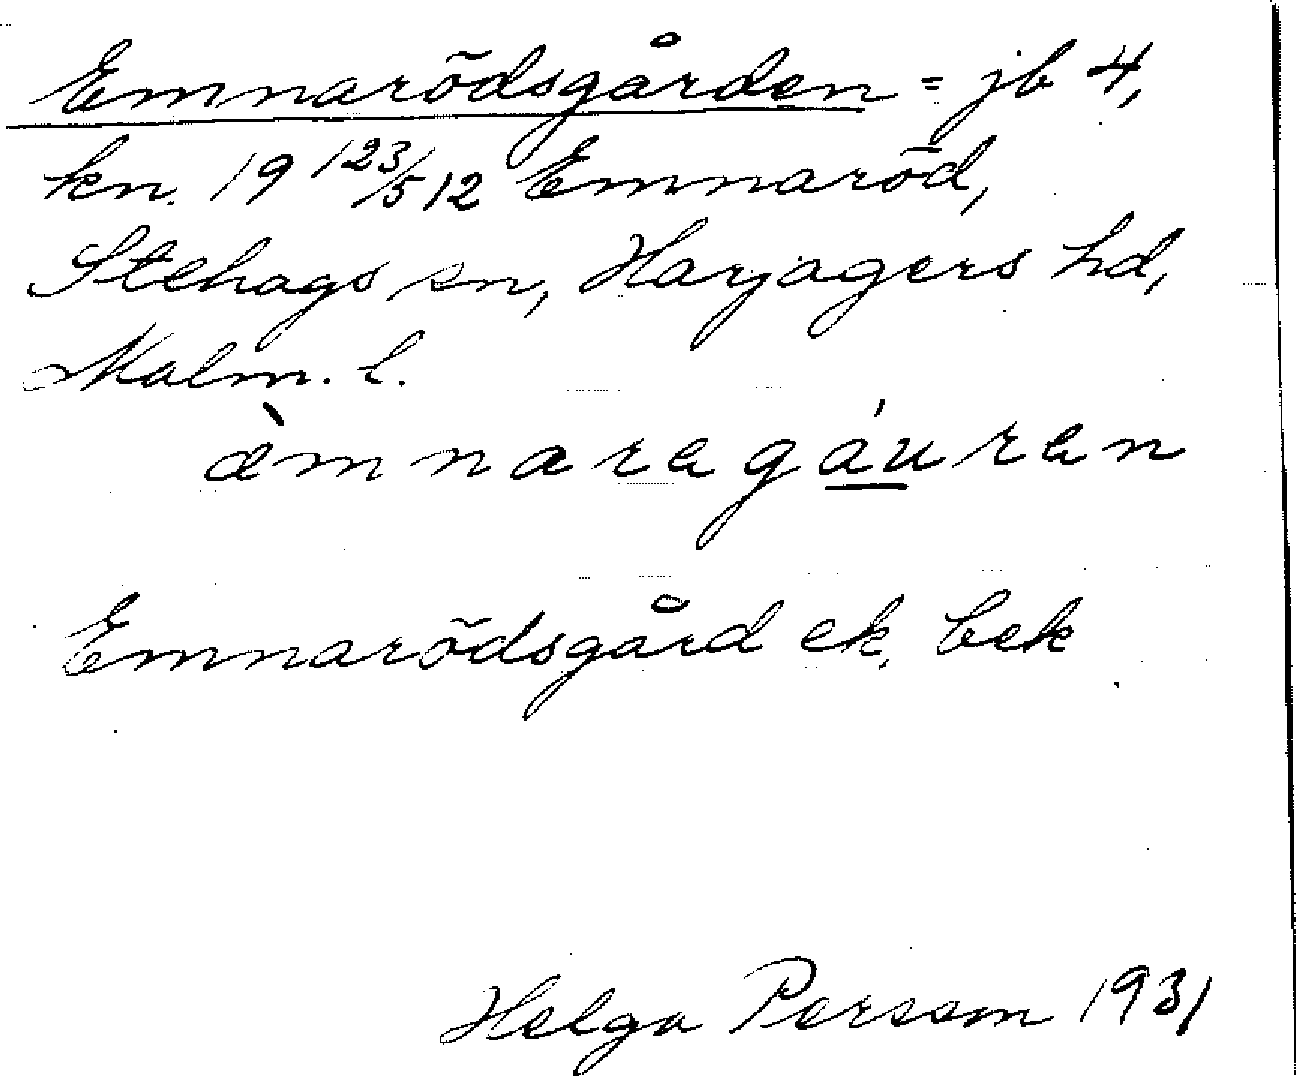 Emnarödsgården = jb 4,
kn. 19 123/512 Emnaröd,
Stehags sn, Harjagers hd,
Malm. l.
æ̀mnaragáuran
Emnarödsgård ek. bek
Helga Persson 1931